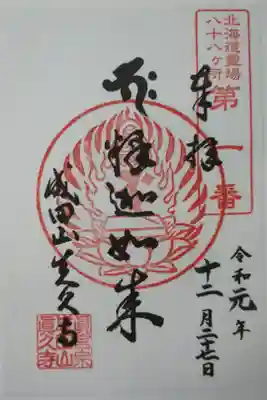 北海道霊場
八十八ヶ所
第一番
奉拝
令和元年
十二月二十七日
釋迦如来
成田山真久寺
真言宗
成田山
眞久寺